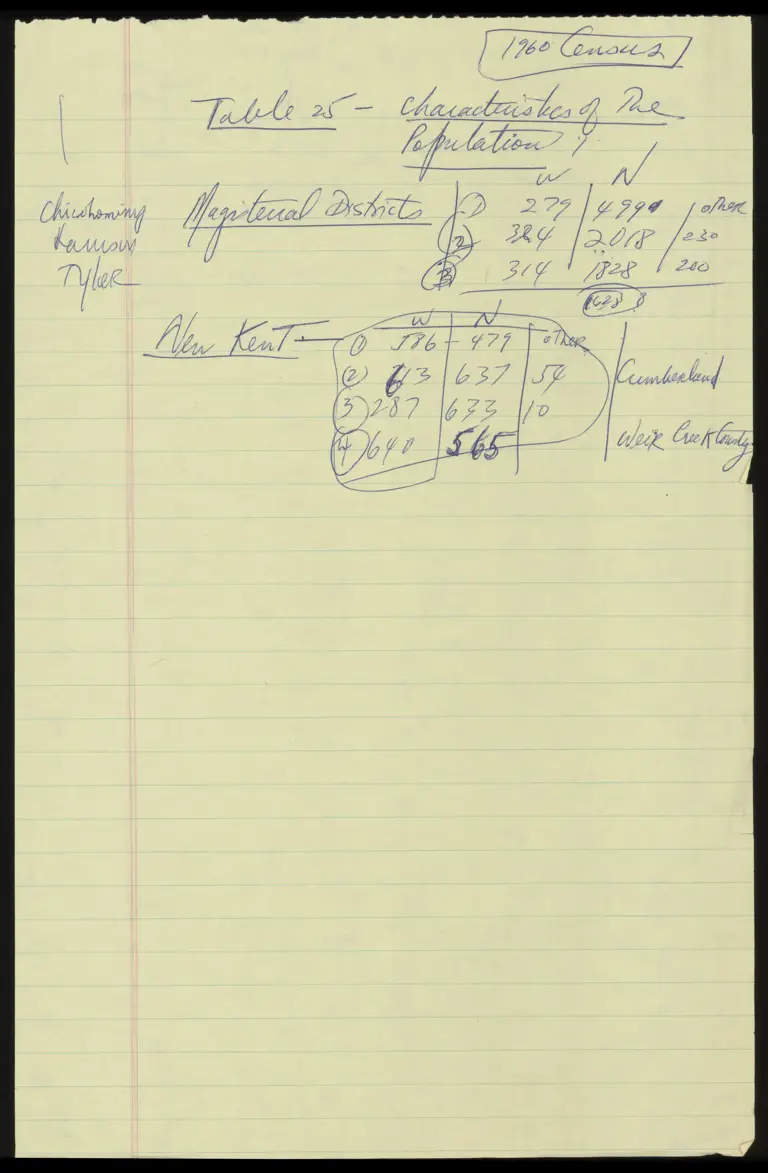 1960 Census
Table 25 - Characteristics of The
Population
W N
Magisterial Districts 1) 279 other
Tyler (2) 2018 230
(3) 314 1828 200
W N
New Kent - (1) 586 - 479 other
(2) 613 637 54 Cumberland
(3) 287 633 10
(4) 640 565 Weir Creek